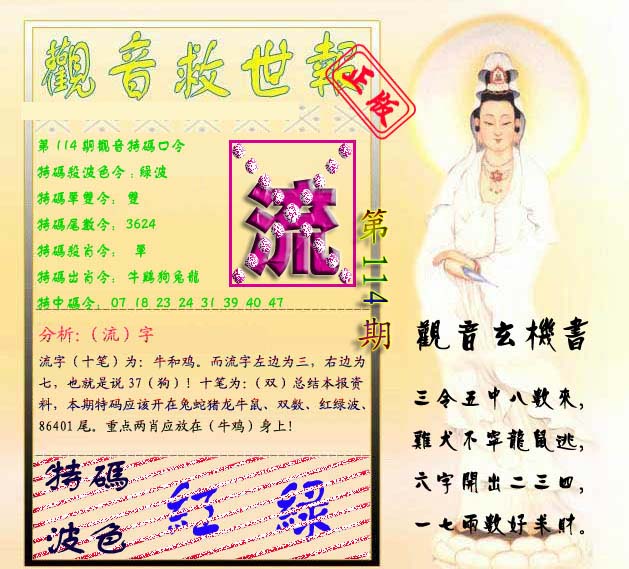 觀音救世報
正版
第114期觀音特碼口令
特碼殺波色令:綠波
特碼單雙令: 雙
特碼尾數令: 3624
特碼殺肖令: 單
特碼出肖令: 牛鷄狗兔龍
特中碼令: 07 18 23 24 31 39 40 47
流
第114期
分析:（流）字
流字（十笔）为：牛和鸡。而流字左边为三，右边为
七，也就是说 37（狗）！十笔为：（双）总结本报资
料，本期特码应该开在兔蛇猪龙牛鼠、双数、红绿波、
86401 尾。重点两肖应放在（牛鸡）身上！
特碼
波色
紅 綠
觀音玄機書
三令五中八數來,
雞犬不寧龍鼠逃,
六字開出二三四,
一七兩數好求財。